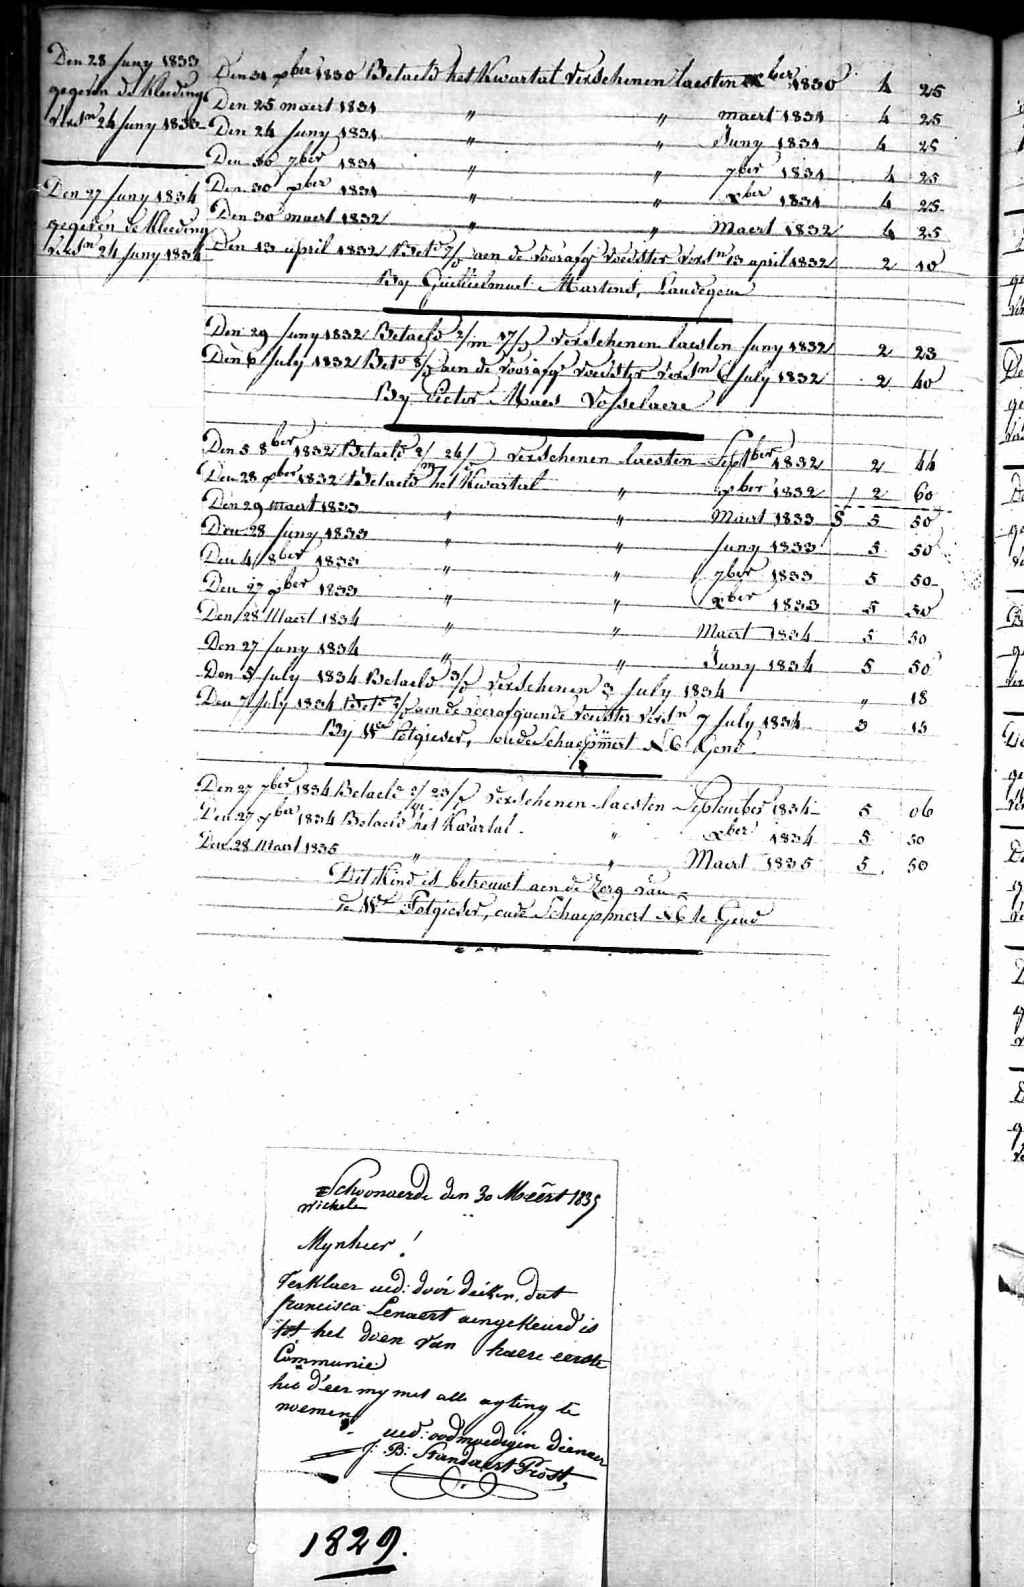 Den 28 Juny 1833
gegeven de kleeding
verstn 24 Juny 1833
Den 27 Juny 1834
gegeven de kleeding
verstn 24 Juny 1834
Den 31 xber 1830 Betaeld het Kwartal verschenen laesten xber 1830 4 25
Den 25 maert 1831 " " maert 1831 4 25
Den 24 Juny 1831 " " Juny 1831 4 25
Den 30 7ber 1831 " " 7ber 1831 4 25
Den 30 xber 1831 " " xber 1831 4 25
Den 30 maert 1832 " " Maert 1832 4 25
Den 13 april 1832 aen de voorafg voedster verstn 13 april 1832 2 10
By Guilielmus Martens, Landegem
Den 29 Juny 1832 Betaeld 2/m 17/d verschenen laesten Juny 1832 2 23
Den 6 July 1832 Bet 8/d aen de voorafg voedster verstn 6 July 1832 2 40
By Pieter Maes Vosselaere
Den 5 8ber 1832 Betaeld 2/m 26/d verschenen laesten Septber 1832 2 44
Den 28 xber 1832 Betaeld het Kwartal " xber 1832 2 60
Den 29 Maert 1833 " " Maert 1833 5 5 50
Den 28 Juny 1833 " " Juny 1833 5 50
Den 4 8ber 1833 " " 7ber 1833 5 50
Den 27 xber 1833 " " xber 1833 5 50
Den 28 Maert 1834 " " Maert 1834 5 50
Den 27 Juny 1834 " " Juny 1834 5 50
Den 5 July 1834 Betaeld 3/d verschenen 3 July 1834 " 18
Den 7 July 1834 aen de voorafgaende voedster verstn 7 July 1834 3 15
By We Potgieser, oude Schaepmert N 6 Gend
Den 27 7ber 1834 Betaeld 2/m 23/d verschenen laesten September 1834 5 06
Den 27 xber 1834 Betaeld het Kwartal " xber 1834 5 50
Den 28 Maert 1835 " " Maert 1835 5 50
Dit Kind is betrouwt aen de Zorg van
de We Potgieser, oude Schaepmert N 6 te Gend
Schoonaerde den 30 Meert 1835
Wichele
Mynheer!
Verklaer ued: door deezen, dat
francisca Lenaert aengekeurd is
tot het doen van haere eerste
Communie
heb d'eer my met alle agting te
noemen
ued: oodmoedigen dienaer
J: B: Standaert Prost
1829.